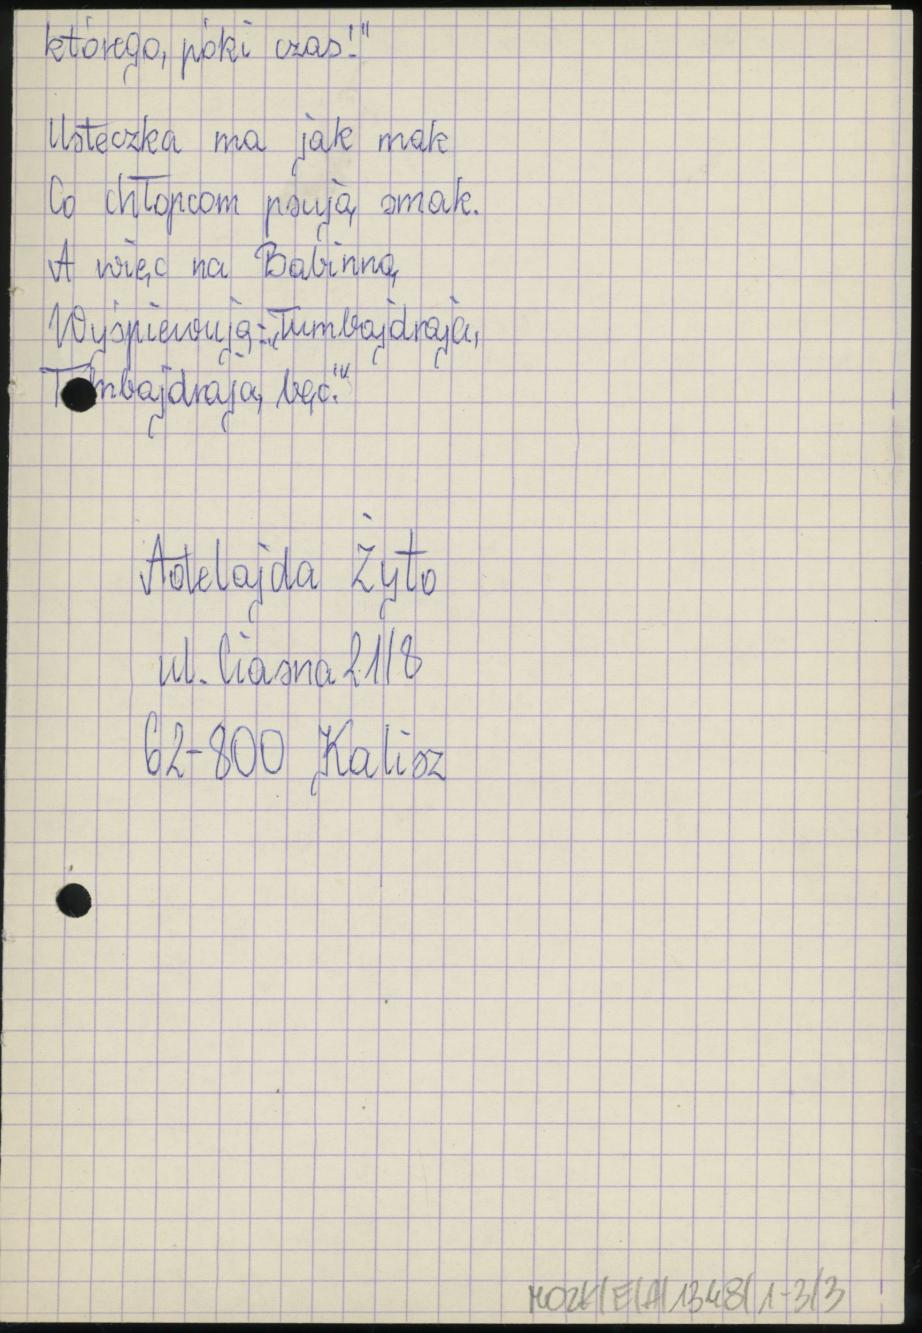 którego, póki czas!"
Usteczka ma jak mak
Co chłopcom psują smak.
A więc na Babinną
Wyśpiewują: „Tumbajdrają,
Tumbajdrają, bęc!"
Adelajda Żyto
ul. Ciasna 21/8
62-800 Kalisz
MOZK/E/A/1348/1-3/3